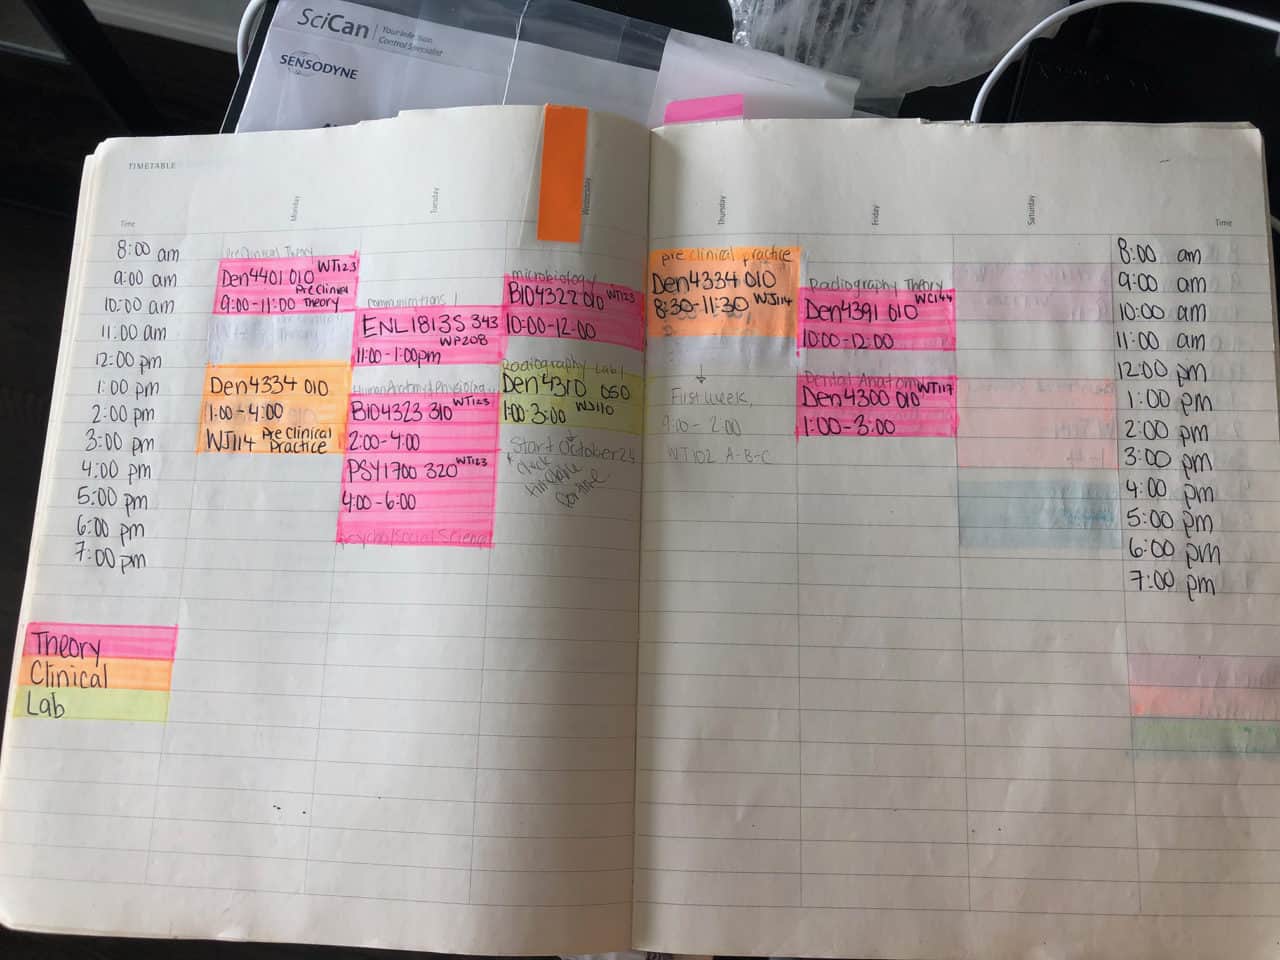 SciCan
Your Infection
Control Specialist
SENSODYNE
TIMETABLE
Time
Monday
Tuesday
Wednesday
Thursday
Friday
Saturday
Time
8:00 am
9:00 am
10:00 am
11:00 am
12:00 pm
1:00 pm
2:00 pm
3:00 pm
4:00 pm
5:00 pm
6:00 pm
7:00 pm
Theory
Clinical
Lab
Pre Clinical Theory
Den4401 010 WT123
Pre Clinical
9:00-11:00 Theory
Den4334 010
1:00-4:00
WJ114 Pre Clinical
Practice
Communications 1
ENL1813S 343
WP208
11:00-1:00pm
Human Anatomy & Physiolo
BIO4323 310 WT123
2:00-4:00
PSY1700 320 WT123
4:00-6:00
Psycho/Social Science
microbiology
BIO4322 010 WT123
10:00-12:00
Radiography Lab 1
Den4310 050
1:00-3:00 WJ110
Start October 23
check
timetable
online
pre clinical practice
Den4334 010
8:30-11:30 WJ114
First week,
9:00-2:00
WT102 A-B-C
Radiography Theory
WC144
Den4391 010
10:00-12:00
Dental Anatomy WT117
Den4300 010
1:00-3:00
8:00 am
9:00 am
10:00 am
11:00 am
12:00 pm
1:00 pm
2:00 pm
3:00 pm
4:00 pm
5:00 pm
6:00 pm
7:00 pm